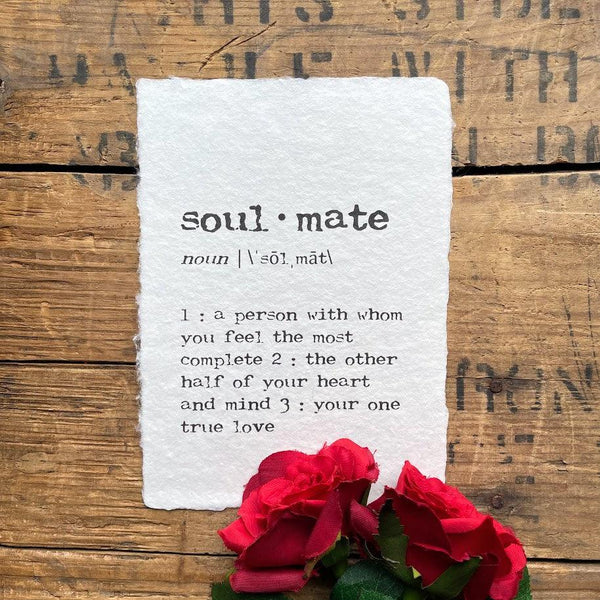 WITH
soul · mate
noun | \ˈsōlˌmāt\
1 : a person with whom
you feel the most
complete 2 : the other
half of your heart
and mind 3 : your one
true love